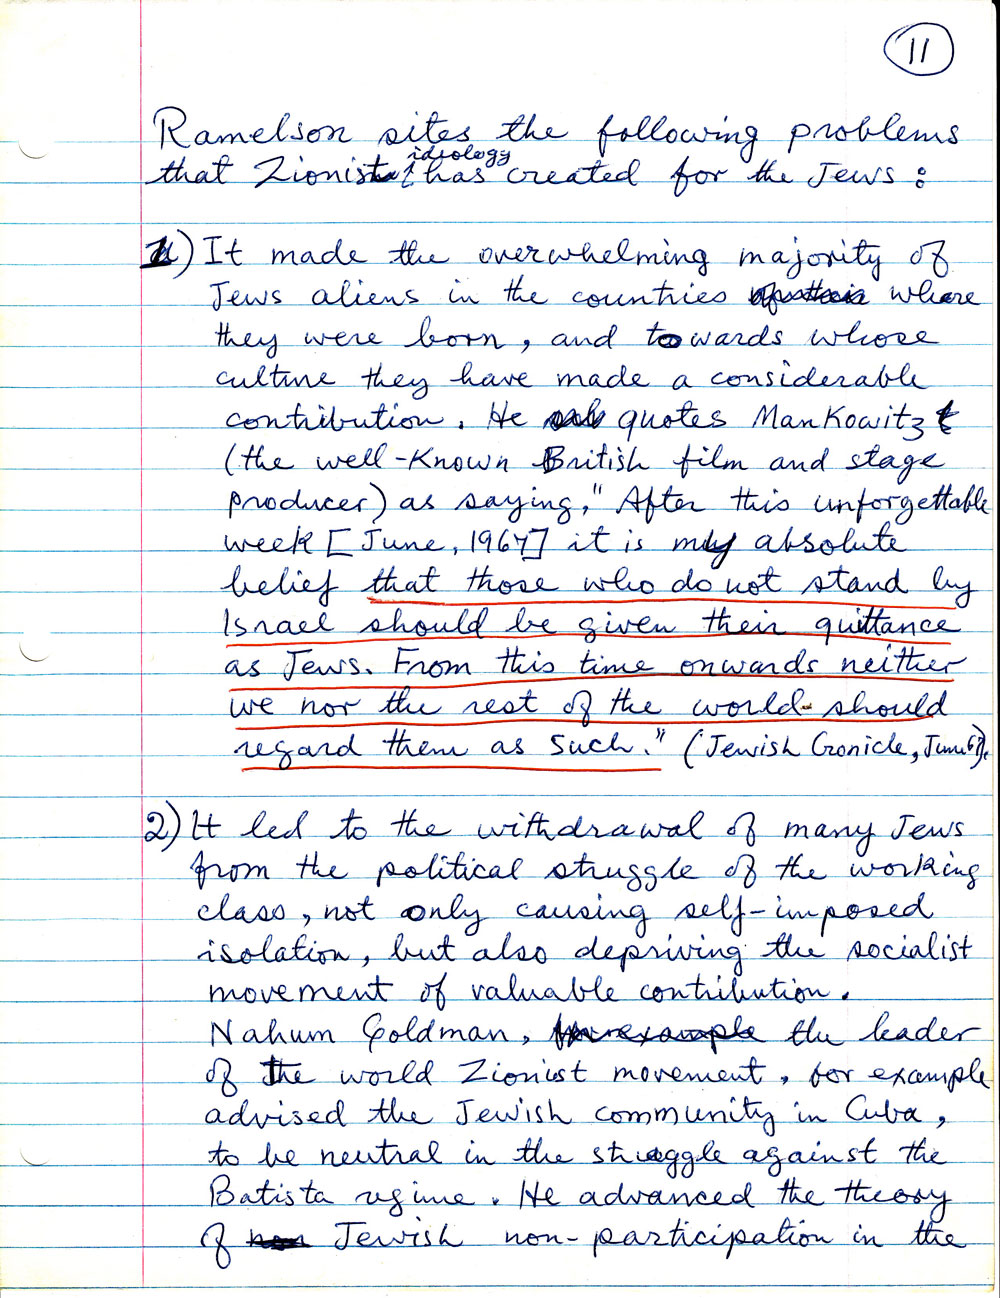 11
Ramelson sites the following problems
that Zionist ideology has created for the Jews :
1) It made the overwhelming majority of
Jews aliens in the countries where
they were born, and towards whose
culture they have made a considerable
contribution. He quotes Mankowitz
(the well-known British film and stage
producer) as saying, "After this unforgettable
week [June, 1967] it is my absolute
belief that those who do not stand by
Israel should be given their quittance
as Jews. From this time onwards neither
we nor the rest of the world should
regard them as such." (Jewish Cronicle, June 67).
2) It led to the withdrawal of many Jews
from the political struggle of the working
class, not only causing self-imposed
isolation, but also depriving the socialist
movement of valuable contribution.
Nahum Goldman, for example the leader
of the world Zionist movement, for example
advised the Jewish community in Cuba,
to be neutral in the struggle against the
Batista regime. He advanced the theory
of non Jewish non-participation in the